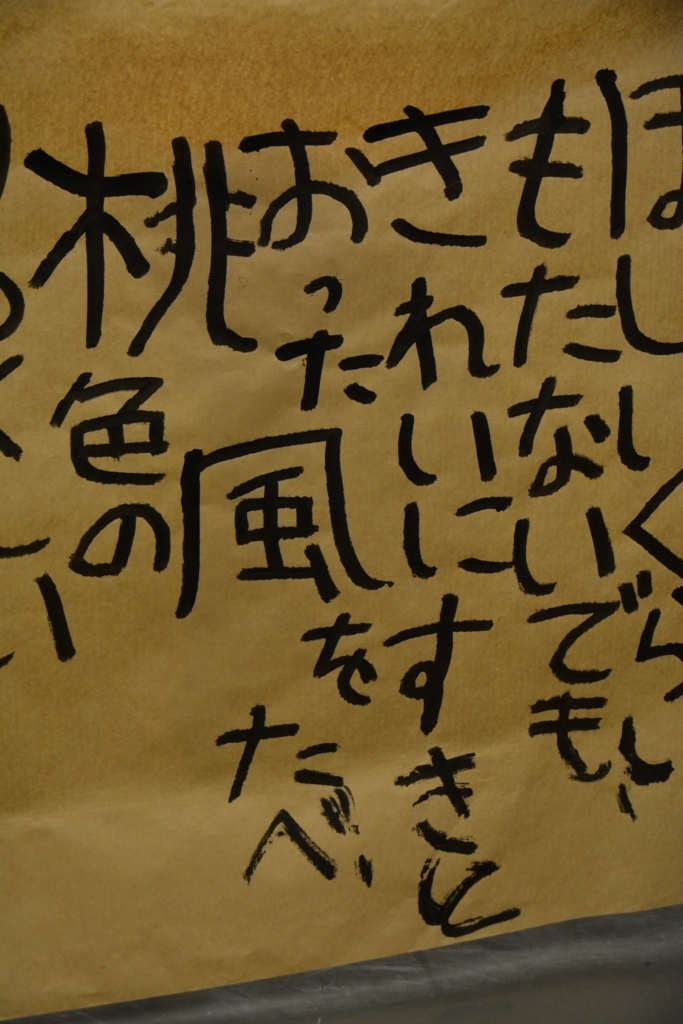 ほしいくらい
もたないでも、
きれいにすきと
おった風をたべ、
桃色の